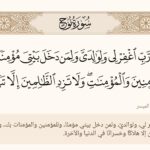 سُورَةُ نُوحٍ
رَّبِّ ٱغْفِرْ لِى وَلِوَٰلِدَىَّ وَلِمَن دَخَلَ بَيْتِىَ مُؤْمِنًا
وَٱلْمُؤْمِنَٰتِ وَلَا تَزِدِ ٱلظَّٰلِمِينَ إِلَّا
الميسر
ولوالديّ، ولمن دخل بيتي مؤمنًا، وللمؤمنين والمؤمنات بك،
إلا هلاكًا وخسرانًا في الدنيا والآخرة.